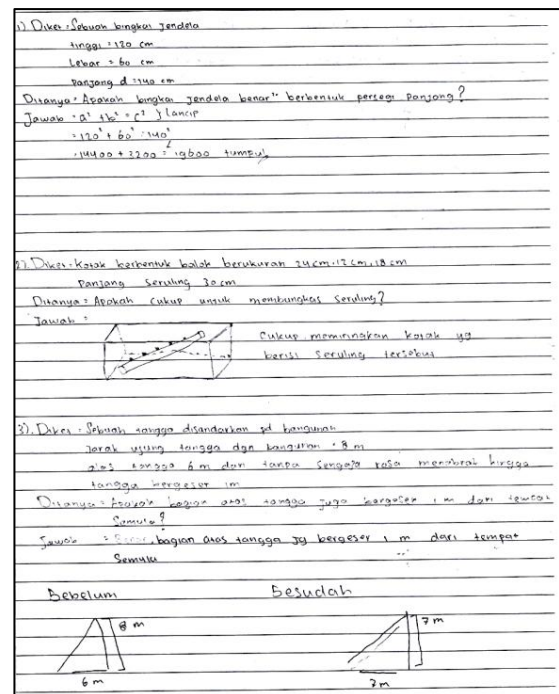 1) Diket : Sebuah bingkai jendela
tinggi = 120 cm
Lebar = 60 cm
panjang d = 140 cm
Ditanya = Apakah bingkai jendela benar" berbentuk persegi panjang ?
Jawab = a² + b² = c² } lancip
= 120² + 60² = 140²
= 14400 + 2200 = 19600 tumpul
2). Diket = Kotak berbentuk balok berukuran 24 cm, 12 cm, 18 cm
Panjang Seruling 30 cm
Ditanya = Apakah cukup untuk membungkus seruling ?
Jawab =
Cukup memiringkan kotak yg
berisi seruling tersebut
3). Diket = Sebuah tangga disandarkan pd bangunan
Jarak ujung tangga dgn bangunan = 8 m
alas tangga 6 m dan tanpa sengaja rosa menabrak hingga
tangga bergeser 1m
Ditanya = Apakah bagian atas tangga juga bergeser 1 m dari tempat
Semula ?
Jawab = bagian atas tangga jg bergeser 1 m dari tempat
Semula
Sebelum Sesudah
8 m 7 m
6 m 7m